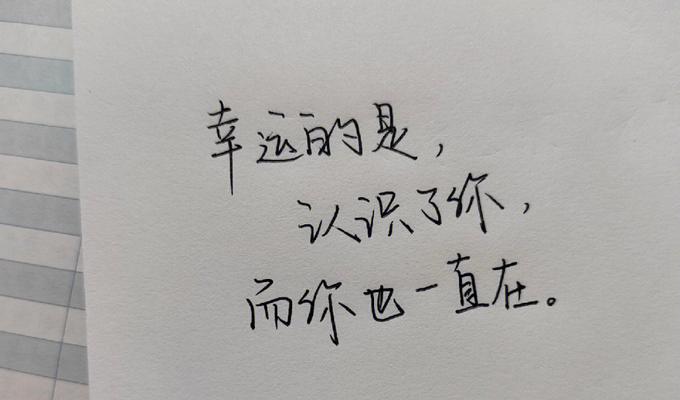 幸运的是，
认识了你，
而你也一直在。